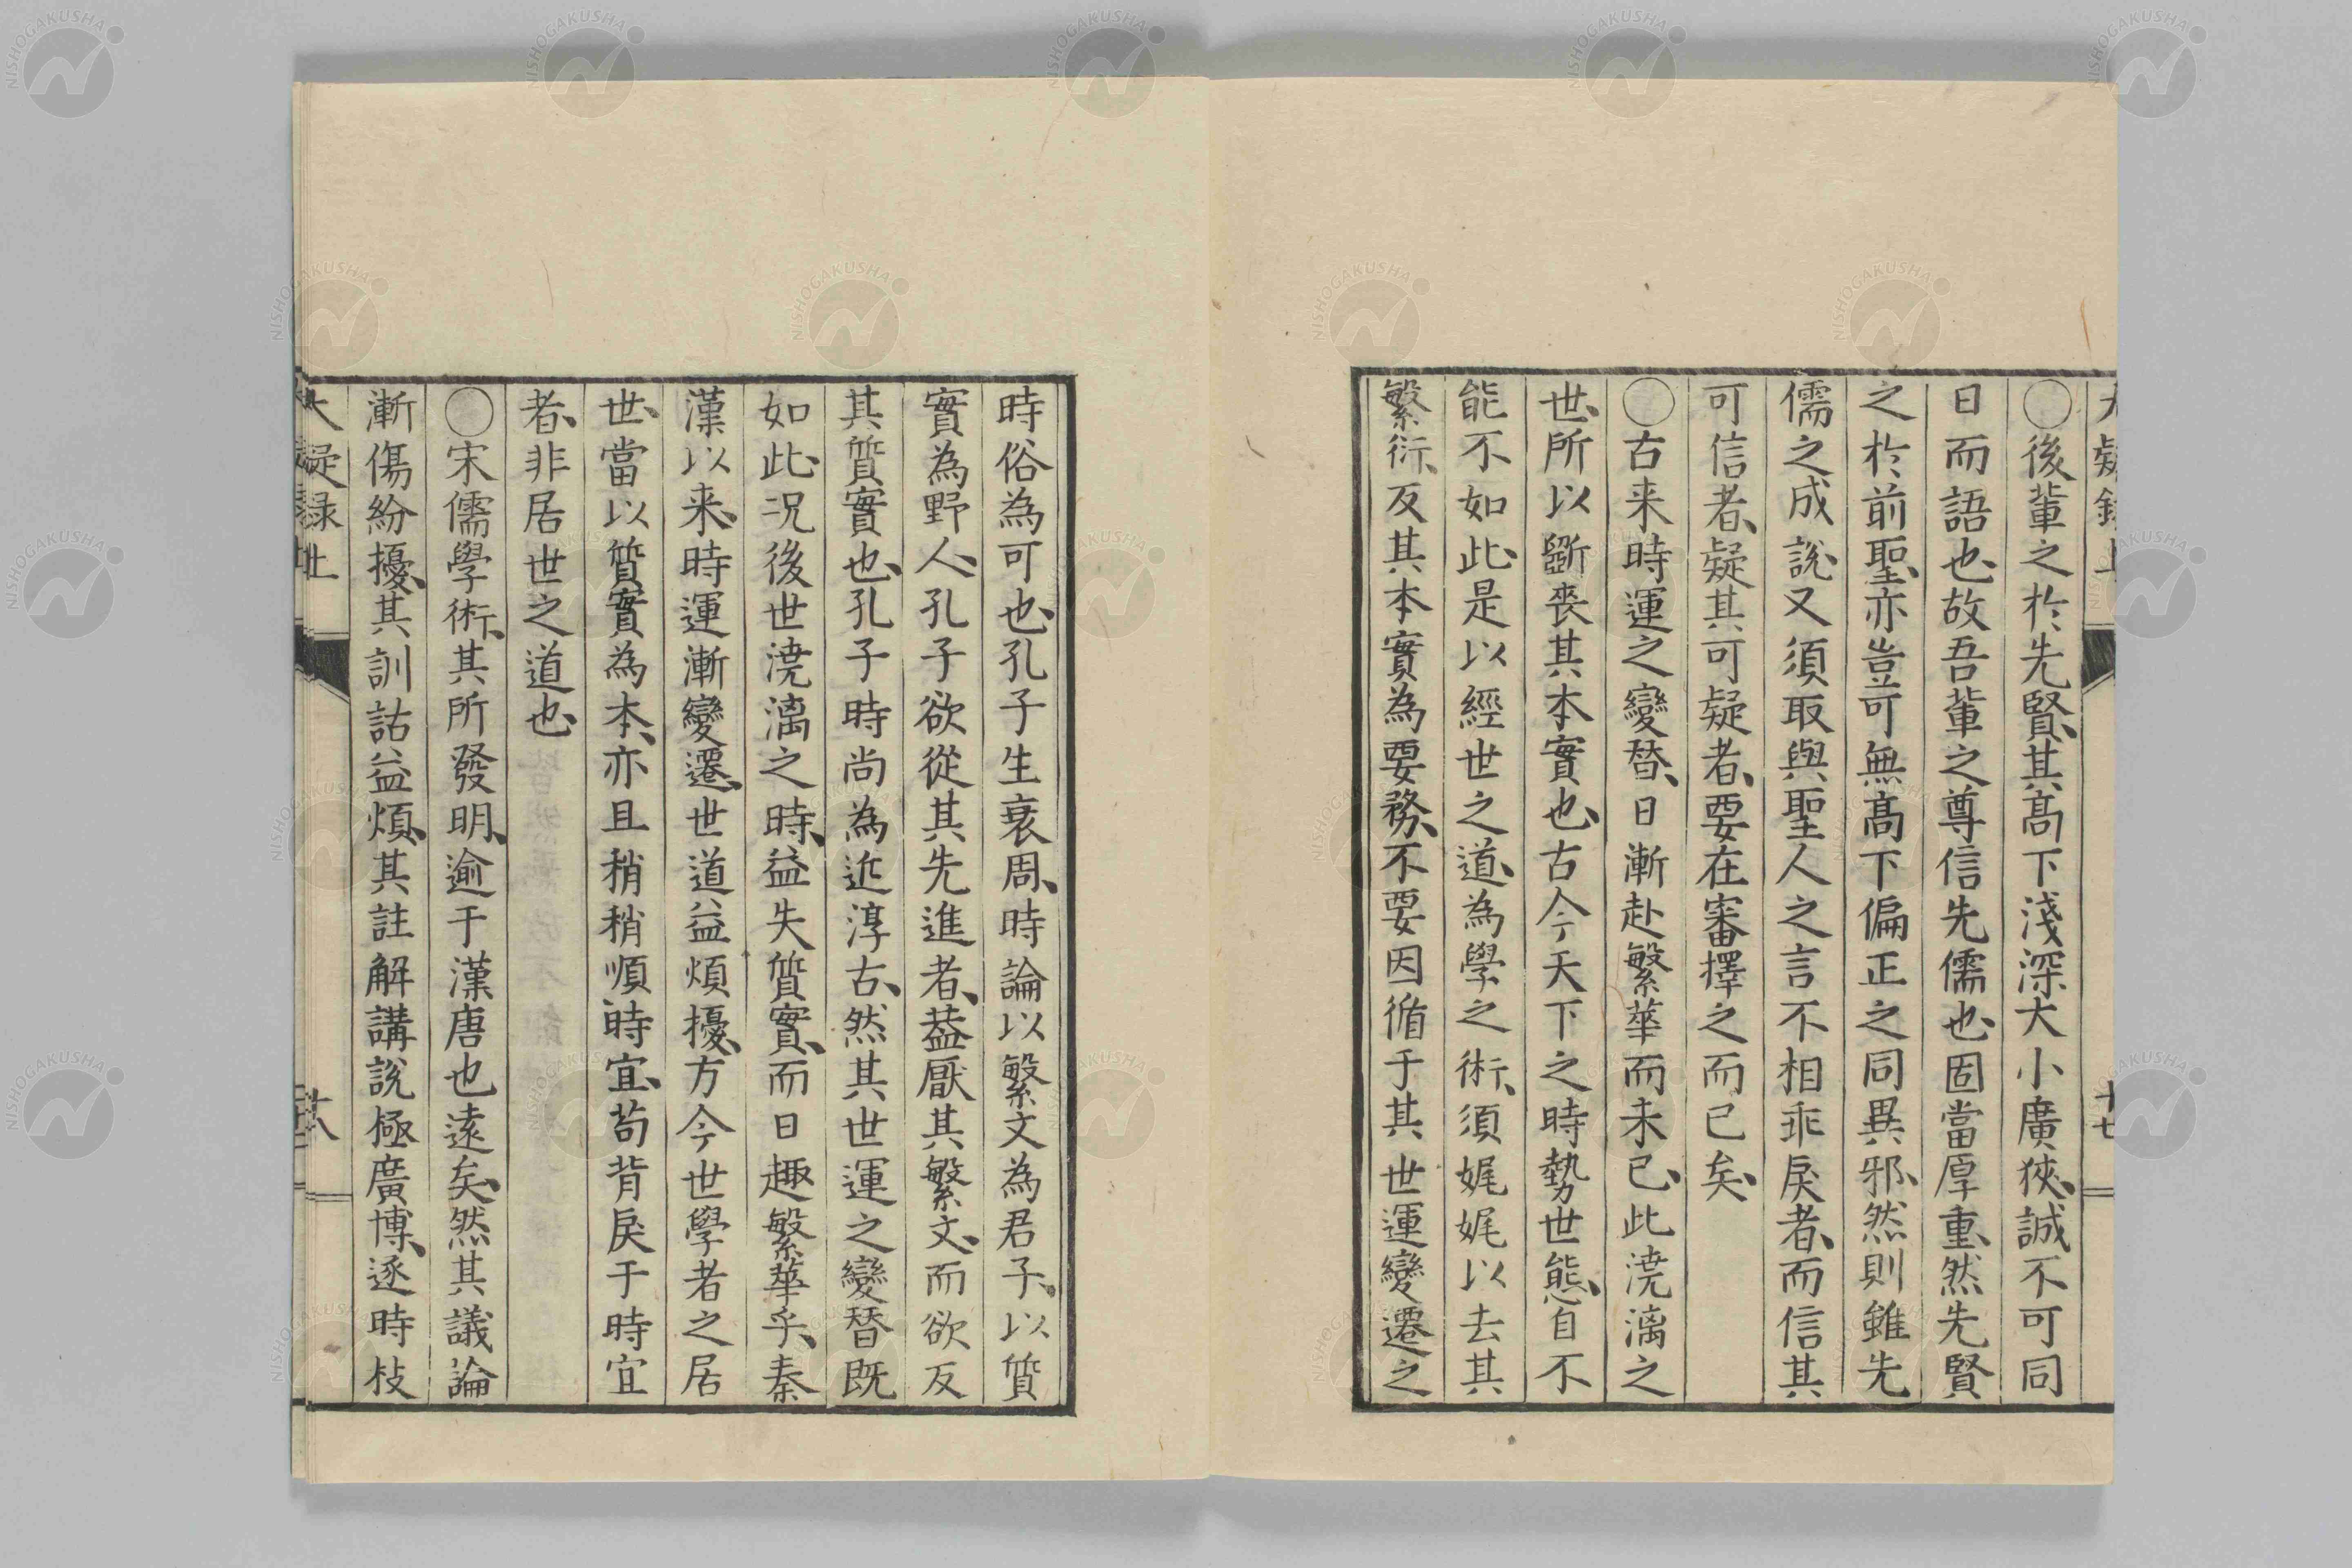 大疑錄上
十七
○後輩之於先賢、其高下淺深大小廣狹、誠不可同
日而語也、故吾輩之尊信先儒也、固當厚重、然先賢
之於前聖、亦豈可無高下偏正之同異邪、然則雖先
儒之成說又須取與聖人之言不相乖戾者、而信其
可信者、疑其可疑者、要在審擇之而已矣、
○古来時運之變替、日漸赴繁華而未已、此澆漓之
世、所以斵喪其本實也、古今天下之時勢世態、自不
能不如此、是以經世之道、為學之術、須娓娓以去其
繁衍、反其本實為要務、不要因循于其世運變遷之
時俗為可也、孔子生衰周、時論以繁文為君子、以質
實為野人、孔子欲從其先進者、葢厭其繁文、而欲反
其質實也、孔子時尚為近淳古、然其世運之變替既
如此、况後世澆漓之時、益失質實、而日趣繁華乎、秦
漢以来、時運漸變遷、世道益煩擾、方今世學者之居
世、當以質實為本、亦且稍稍順時宜、苟背戾于時宜
者、非居世之道也、
○宋儒學術、其所發明、逾于漢唐也遠矣、然其議論
漸傷紛擾、其訓詁益煩、其註解講說極廣博、逐時枝
大疑錄上
NISHOGAKUSHA